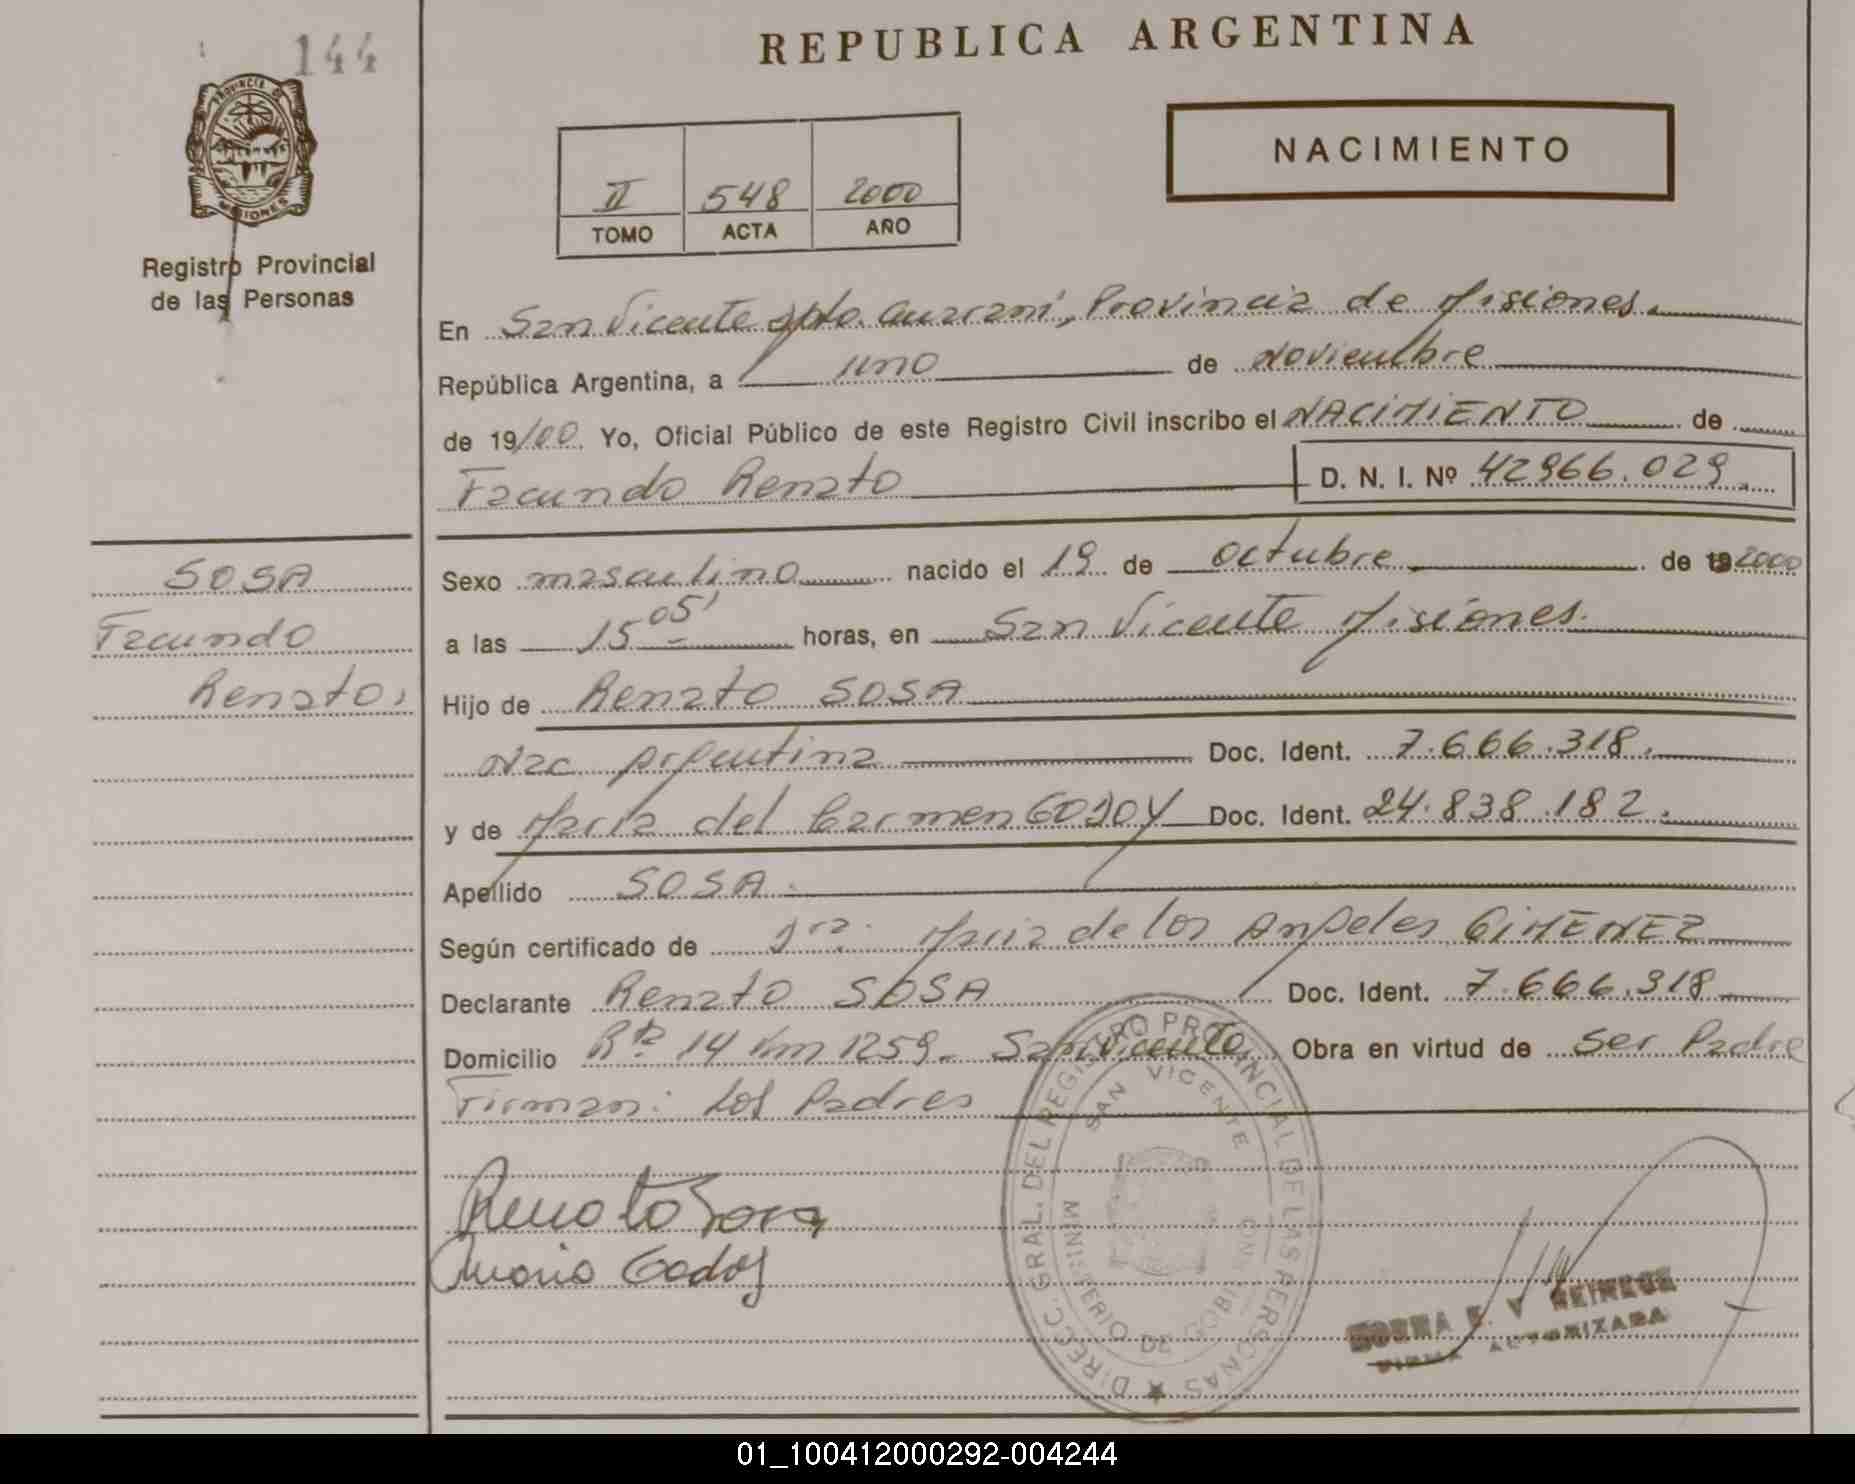 144
REPUBLICA ARGENTINA
PROVINCIA DE
MISIONES
Registro Provincial
de las Personas
NACIMIENTO
II 548 2000
TOMO ACTA AÑO
En San Vicente Dpto. Guarani, Provincia de Misiones.
República Argentina, a uno de Noviembre
de 19/00. Yo, Oficial Público de este Registro Civil inscribo el NACIMIENTO de
Facundo Renato D. N. I. Nº 42966.029
SOSA
Facundo
Renato
Sexo masculino nacido el 19 de octubre de 19 2000
a las 15 05' horas, en San Vicente Misiones.
Hijo de Renato SOSA
Nac Argentina Doc. Ident. 7.666.318.
y de Maria del Carmen GODOY Doc. Ident. 24.838.182.
Apellido SOSA
Según certificado de Dra. Maria de los Angeles GIMENEZ
Declarante Renato SOSA Doc. Ident. 7.666.318
Domicilio Rta 14 km 1259. San Vicente Obra en virtud de Ser Padre
Firman: Los Padres
Renato Sosa
Maria Godoy
DIRECC. GRAL. DEL REGISTRO PROVINCIAL DE LAS PERSONAS
SAN VICENTE
MINISTERIO DE GOBIERNO
NORMA E. V REINEGE
FIRMA AUTORIZADA
01_100412000292-004244